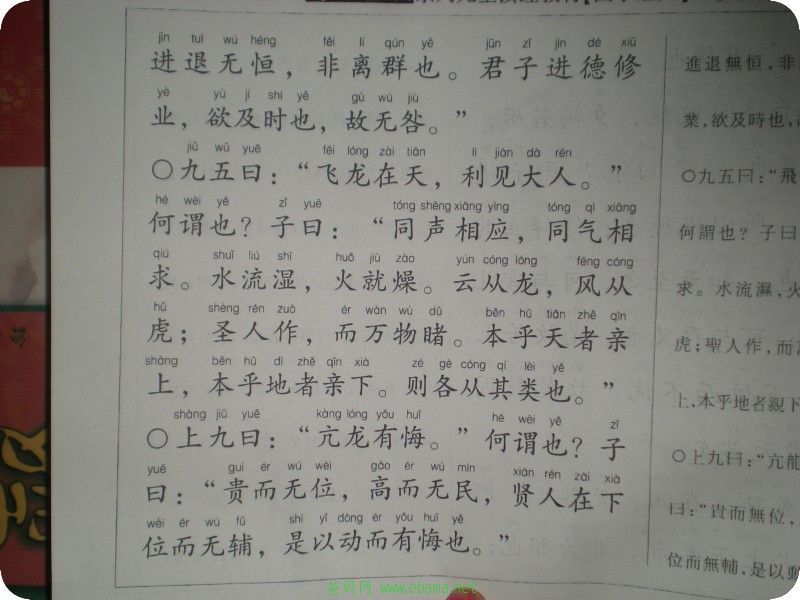 jìn tuì wú héng fēi lí qún yě jūn zǐ jìn dé xiū
进退无恒，非离群也。君子进德修
yè yù jí shí yě gù wú jiù
业，欲及时也，故无咎。”
jiǔ wǔ yuē fēi lóng zài tiān lì jiàn dà rén
○九五曰：“飞龙在天，利见大人。”
hé wèi yě zǐ yuē tóng shēng xiāng yìng tóng qì xiāng
何谓也？子曰：“同声相应，同气相
qiú shuǐ liú shī huǒ jiù zào yún cóng lóng fēng cóng
求。水流湿，火就燥。云从龙，风从
hǔ shèng rén zuò ér wàn wù dǔ běn hū tiān zhě qīn
虎；圣人作，而万物睹。本乎天者亲
shàng běn hū dì zhě qīn xià zé gè cóng qí lèi yě
上，本乎地者亲下。则各从其类也。”
shàng jiǔ yuē kàng lóng yǒu huǐ hé wèi yě zǐ
○上九曰：“亢龙有悔。”何谓也？子
yuē guì ér wú wèi gāo ér wú mín xián rén zài xià
曰：“贵而无位，高而无民，贤人在下
wèi ér wú fǔ shì yǐ dòng ér yǒu huǐ yě
位而无辅，是以动而有悔也。”
進退無恒，非
業，欲及時也，
○九五曰：“飛
何謂也？子曰
求。水流濕，火
虎；聖人作，而
上，本乎地者親下
○上九曰：“亢龍
曰：“貴而無位，
位而無輔，是以動
爸妈网 www.ebama.net